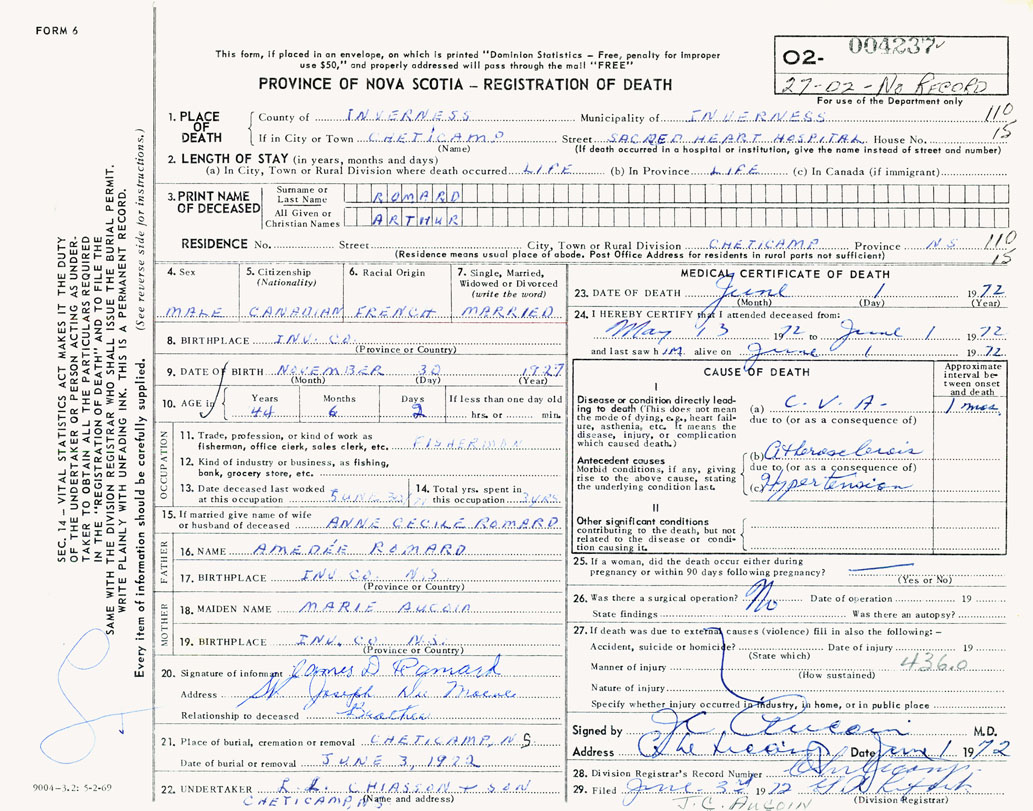 FORM 6
This form, if placed in an envelope, on which is printed "Dominion Statistics – Free, penalty for improper
use $50," and properly addressed will pass through the mail "FREE"
PROVINCE OF NOVA SCOTIA – REGISTRATION OF DEATH
O2- 004237
27-02-No RECORD
For use of the Department only
1. PLACE OF DEATH
County of INVERNESS Municipality of INVERNESS 110
If in City or Town CHETICAMP Street SACRED HEART HOSPITAL House No. 15
(Name) (If death occurred in a hospital or institution, give the name instead of street and number)
2. LENGTH OF STAY (in years, months and days)
(a) In City, Town or Rural Division where death occurred LIFE (b) In Province LIFE (c) In Canada (if immigrant)
3. PRINT NAME OF DECEASED
Surname or Last Name ROMARD
All Given or Christian Names ARTHUR
RESIDENCE No. Street City, Town or Rural Division CHETICAMP Province N.S 110
(Residence means usual place of abode. Post Office Address for residents in rural parts not sufficient) 15
4. Sex MALE
5. Citizenship (Nationality) CANADIAN
6. Racial Origin FRENCH
7. Single, Married, Widowed or Divorced (write the word) MARRIED
8. BIRTHPLACE INV. CO.
(Province or Country)
9. DATE OF BIRTH NOVEMBER 30 1927
(Month) (Day) (Year)
10. AGE in Years Months Days If less than one day old
44 6 2 hrs. or min.
OCCUPATION
11. Trade, profession, or kind of work as fisherman, office clerk, sales clerk, etc. FISHERMAN
12. Kind of industry or business, as fishing, bank, grocery store, etc.
13. Date deceased last worked at this occupation
14. Total yrs. spent in this occupation
15. If married give name of wife or husband of deceased ANNE CECILE ROMARD
FATHER
16. NAME AMEDÉE ROMARD
17. BIRTHPLACE INV CO N.S.
(Province or Country)
MOTHER
18. MAIDEN NAME MARIE AUCOIN
19. BIRTHPLACE INV. CO N.S.
(Province or Country)
20. Signature of informant James D Romard
Address St Joseph Du Moine
Relationship to deceased Brother
21. Place of burial, cremation or removal CHETICAMP, N S.
Date of burial or removal JUNE 3, 1972
22. UNDERTAKER CHIASSON + SON
CHETICAMP (Name and address)
MEDICAL CERTIFICATE OF DEATH
23. DATE OF DEATH June 1 1972
(Month) (Day) (Year)
24. I HEREBY CERTIFY that I attended deceased from:
May 13 1972 to June 1 1972
and last saw him alive on June 1 1972
CAUSE OF DEATH
Approximate interval between onset and death
I
Disease or condition directly leading to death (This does not mean the mode of dying, e.g., heart failure, asthenia, etc. It means the disease, injury, or complication which caused death.)
(a) C.V.A. 1 mos.
due to (or as a consequence of)
Antecedent causes
Morbid conditions, if any, giving rise to the above cause, stating the underlying condition last.
(b) Atherosclerosis
due to (or as a consequence of)
(c) Hypertension
II
Other significant conditions
contributing to the death, but not related to the disease or condition causing it.
25. If a woman, did the death occur either during
pregnancy or within 90 days following pregnancy?
(Yes or No)
26. Was there a surgical operation? No Date of operation 19
State findings Was there an autopsy?
27. If death was due to external causes (violence) fill in also the following: –
Accident, suicide or homicide? Date of injury 19
(State which)
Manner of injury 436.0
(How sustained)
Nature of injury
Specify whether injury occurred in industry, in home, or in public place
Signed by Aucoin M.D.
Address Cheticamp Date June 1 1972
28. Division Registrar's Record Number
29. Filed June 3rd 1972
J.C. AUCOIN (Division Registrar)
SEC. 14 – VITAL STATISTICS ACT MAKES IT THE DUTY
OF THE UNDERTAKER OR PERSON ACTING AS UNDER-
TAKER TO OBTAIN ALL THE PARTICULARS REQUIRED
IN THE "REGISTRATION OF DEATH" AND TO FILE THE
SAME WITH THE DIVISION REGISTRAR WHO SHALL ISSUE THE BURIAL PERMIT.
WRITE PLAINLY WITH UNFADING INK. THIS IS A PERMANENT RECORD.
Every item of information should be carefully supplied. (See reverse side for instructions.)
9004-3.2: 5-2-69